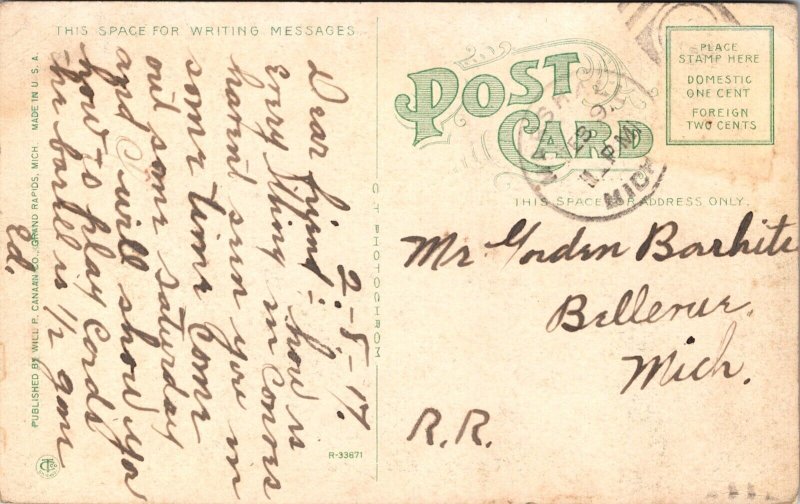 THIS SPACE FOR WRITING MESSAGES
POST CARD
PLACE
STAMP HERE
DOMESTIC
ONE CENT
FOREIGN
TWO CENTS
THIS SPACE FOR ADDRESS ONLY.
11 PM
MICH
2-8-17.
Dear friend:- how is
Every thing in Conors
havent seen you in
some time Come
out some saturday
and I will show you
how to play Cards
the barrel is 1/2 gon
Ed.
Mr Gorden Barhite
Bellevue,
Mich.
R.R.
PUBLISHED BY WILL P. CANAAN CO., GRAND RAPIDS, MICH. MADE IN U.S.A.
C T PHOTOCHROM
R-33671